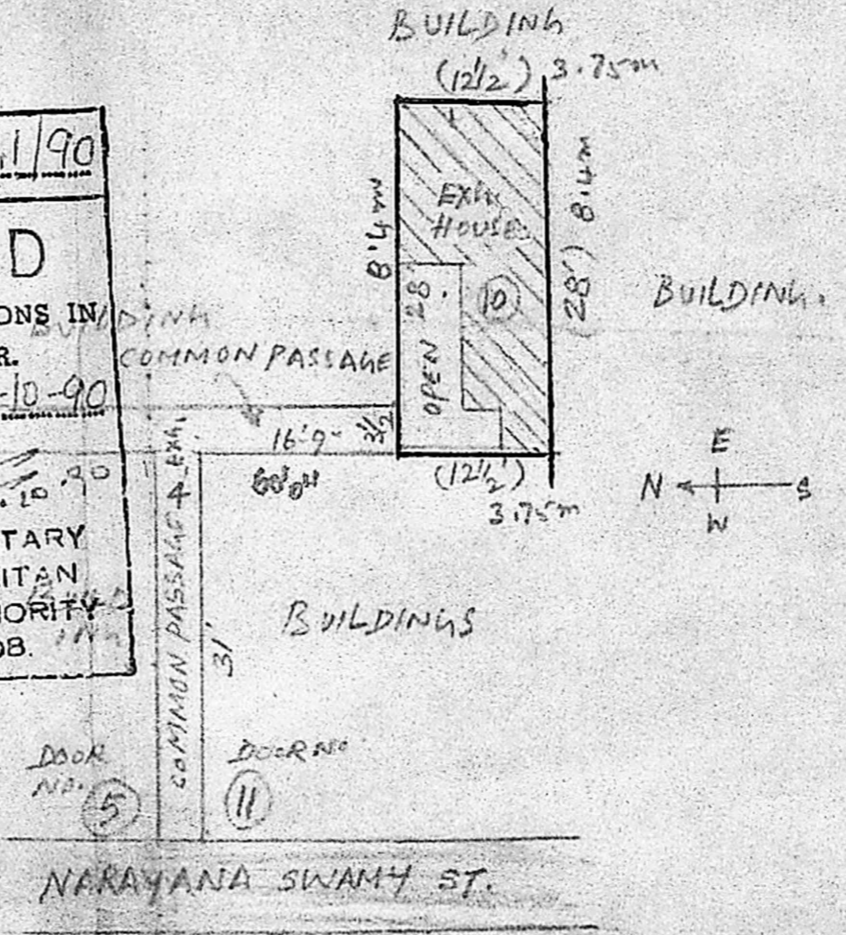 BUILDING
(12½') 3.75m
1/90
D
ONS IN
R.
-10-90
.10.90
TARY
ITAN
HORITY
08.
BUILDING
COMMON PASSAGE
16'-9"
3½
8'4m
28'
OPEN
EXG.
HOUSE
10
(28') 8.4m
BUILDING.
(12½')
3.75m
E
N
S
W
COMMON PASSAGE 4
EXG.
31'
BUILDINGS
DOOR
NO.
5
DOOR NO
11
NARAYANA SWAMY ST.